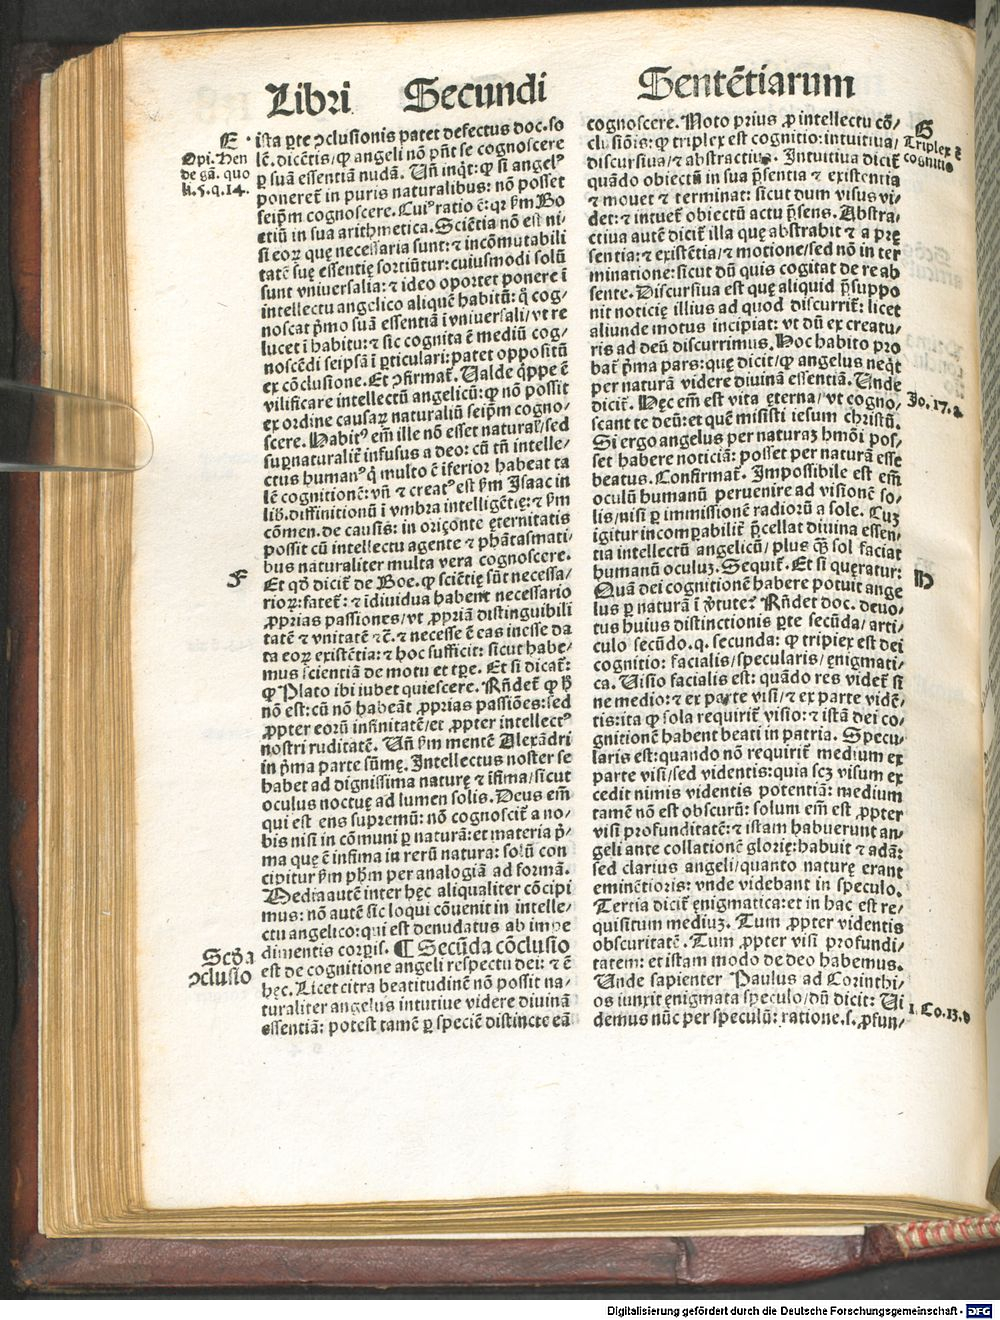 Libri Secundi Sentētiarum
E
Opi. Hen
de gā. quo
li. 5. q. 14.
ista ꝑte ꝯclusionis patet defectus doc. so
lē. dicētis/ ꝙ angeli nō pn̄t se cognoscere
ꝑ suā essentiā nudā. Un̄ inq̇t: ꝙ si angelꝰ
poneret̄ in puris naturalibus: nō posset
seip̄m cognoscere. Cuiꝰ ratio ē: qꝛ ẜm Bo
etiū in sua arithmetica. Sciētia nō est ni/
si eoꝝ quę necessaria sunt: ⁊ incōmutabili
tatē suę essentię sortiūtur: cuiusmodi solū
sunt vniuersalia: ⁊ ideo oportet ponere ī
intellectu angelico aliquē habitū: q̊ cog/
noscat pͥmo suā essentiā ī vniuersali/ vt re
lucet ī habitu: ⁊ sic cognita ē mediū cog/
noscēdi seipsā ī ꝑticulari: patet oppositū
ex cōclusione. Et ꝯfirmat̄. Ualde q̇ppe ē
vilificare intellectū angelicū: ꝙ nō possit
ex ordine causaꝝ naturaliū seip̄m cogno/
scere. Habitꝰ em̄ ille nō esset natural̓/ sed
suꝑnaturalit̄ infusus a deo: cū tn̄ intelle/
ctus humanꝰ q̇ multo ē īferior habeat ta
lē cognitionē: vn̄ ⁊ creatꝰ est ẜm Isaac in
lib. diffinitionū ī vmbra intelligētię: ⁊ ẜm
cōmen. de causis: in oriçonte ęternitatis
possit cū intellectu agente ⁊ phātasmati/
bus naturaliter multa vera cognoscere.
F
Et qḋ dicit̄ de Boe. ꝙ sciētię sūt necessa/
rioꝝ: fatet̄: ⁊ īdiuidua habent necessario
ꝓprias passiones/ vt ꝓpriā distinguibili
tatē ⁊ vnitatē ⁊c̄. ⁊ necesse ē eas inesse da
ta eoꝝ existētia: ⁊ hoc sufficit: sicut habe/
mus scientiā de motu et tꝑe. Et si dicat̄:
ꝙ Plato ibi iubet quiescere. Rn̄det̄ ꝙ ħ
nō est: cū nō habeāt ꝓprias passiōes: sed
ꝓpter eorū infinitatē/ et ꝓpter intellectꝰ
nostri ruditatē. Un̄ ẜm mentē Alexādri
in pͥma parte sūmę. Intellectus noster se
habet ad dignissima naturę ⁊ īfima/ sicut
oculus noctuę ad lumen solis. Deus em̄
qui est ens supremū: nō cognoscit̄ a no/
bis nisi in cōmuni ꝑ naturā: et materia pͥ/
ma quę ē infima in rerū natura: solū con
cipitur ẜm ph̄m per analogiā ad formā.
Media autē inter hęc aliqualiter cōcipi
mus: nō autē sic loqui cōuenit in intelle/
ctu angelico: qui est denudatus ab impe
dimentis corꝑis. ¶ Secūda cōclusio
Scḋa
ꝯclusio
est de cognitione angeli respectu dei: ⁊ ē
hęc. Licet citra beatitudinē nō possit na/
turaliter angelus intutiue videre diuinā
essentiā: potest tamē ꝑ speciē distincte eā
cognoscere. Noto prius ꝓ intellectu cō/
G
Triplex ē
cognitio
clusiōis: ꝙ triplex est cognitio: intuitiua/
discursiua/ ⁊ abstractiua. Intuitiua dicit̄
quādo obiectū in sua pn̄sentia ⁊ existentia
⁊ mouet ⁊ terminat: sicut dum visus vi/
det: ⁊ intuet̄ obiectū actu pn̄sens. Abstra/
ctiua autē dicit̄ illa quę abstrahit ⁊ a pre
sentia: ⁊ existētia/ ⁊ motione/ sed nō in ter
minatione: sicut dū quis cogitat de re ab
sente. Discursiua est quę aliquid pͤsuppo
nit noticię illius ad quod discurrit̄: licet
aliunde motus incipiat: vt dū ex creatu/
ris ad deū discurrimus. Hoc habito pro
bat̄ pͥma pars: quę dicit/ ꝙ angelus neq̇t
per naturā videre diuinā essentiā. Unde
Jo. 17. a
dicit̄. Hęc em̄ est vita ęterna/ vt cogno/
scant te deū: et quē misisti iesum christū.
Si ergo angelus per naturaꝫ hmōi pos/
set habere noticiā: posset per naturā esse
beatus. Confirmat̄. Impossibile est em̄
oculū humanū peruenire ad visionē so/
lis/ nisi ꝑ immissionē radiorū a sole. Cuꝫ
igitur incomꝑabilit̄ pͤcellat diuina essen/
tia intellectū angelicū/ plus qꝫ̄ sol faciat
humanū oculuꝫ. Sequit̄. Et si quęratur:
H
Quā dei cognitionē habere potuit ange
lus ꝑ naturā ī ꝟtute? Rn̄det doc. deuo/
tus huius distinctionis ꝑte secūda/ arti/
culo secūdo. q. secunda: ꝙ triplex est dei
cognitio: facialis/ specularis/ ęnigmati/
ca. Uisio facialis est: quādo res videt̄ si
ne medio: ⁊ ex parte visi/ ⁊ ex parte vidē/
tis: ita ꝙ sola requirit̄ visio: ⁊ istā dei co/
gnitionē habent beati in patria. Specu/
laris est: quando nō requirit̄ medium ex
parte visi/ sed videntis: quia scꝫ visum ex
cedit nimis videntis potentiā: medium
tamē nō est obscurū: solum em̄ est ꝓpter
visi profunditatē: ⁊ istam habuerunt an/
geli ante collationē glorię: habuit ⁊ adā:
sed clarius angeli/ quanto naturę erant
eminētioris: vnde videbant in speculo.
Tertia dicit̄ ęnigmatica: et in hac est re/
quisitum mediuꝫ. Tum ꝓpter videntis
obscuritatē. Tum ꝓpter visi profundi/
tatem: et istam modo de deo habemus.
Unde sapienter Paulus ad Corinthi/
os iunxit ęnigmata speculo/ dū dicit: Ui
1. Co. 13. d
demus nūc per speculū: ratione. s. ꝓfun/
Digitalisierung gefördert durch die Deutsche Forschungsgemeinschaft - DFG